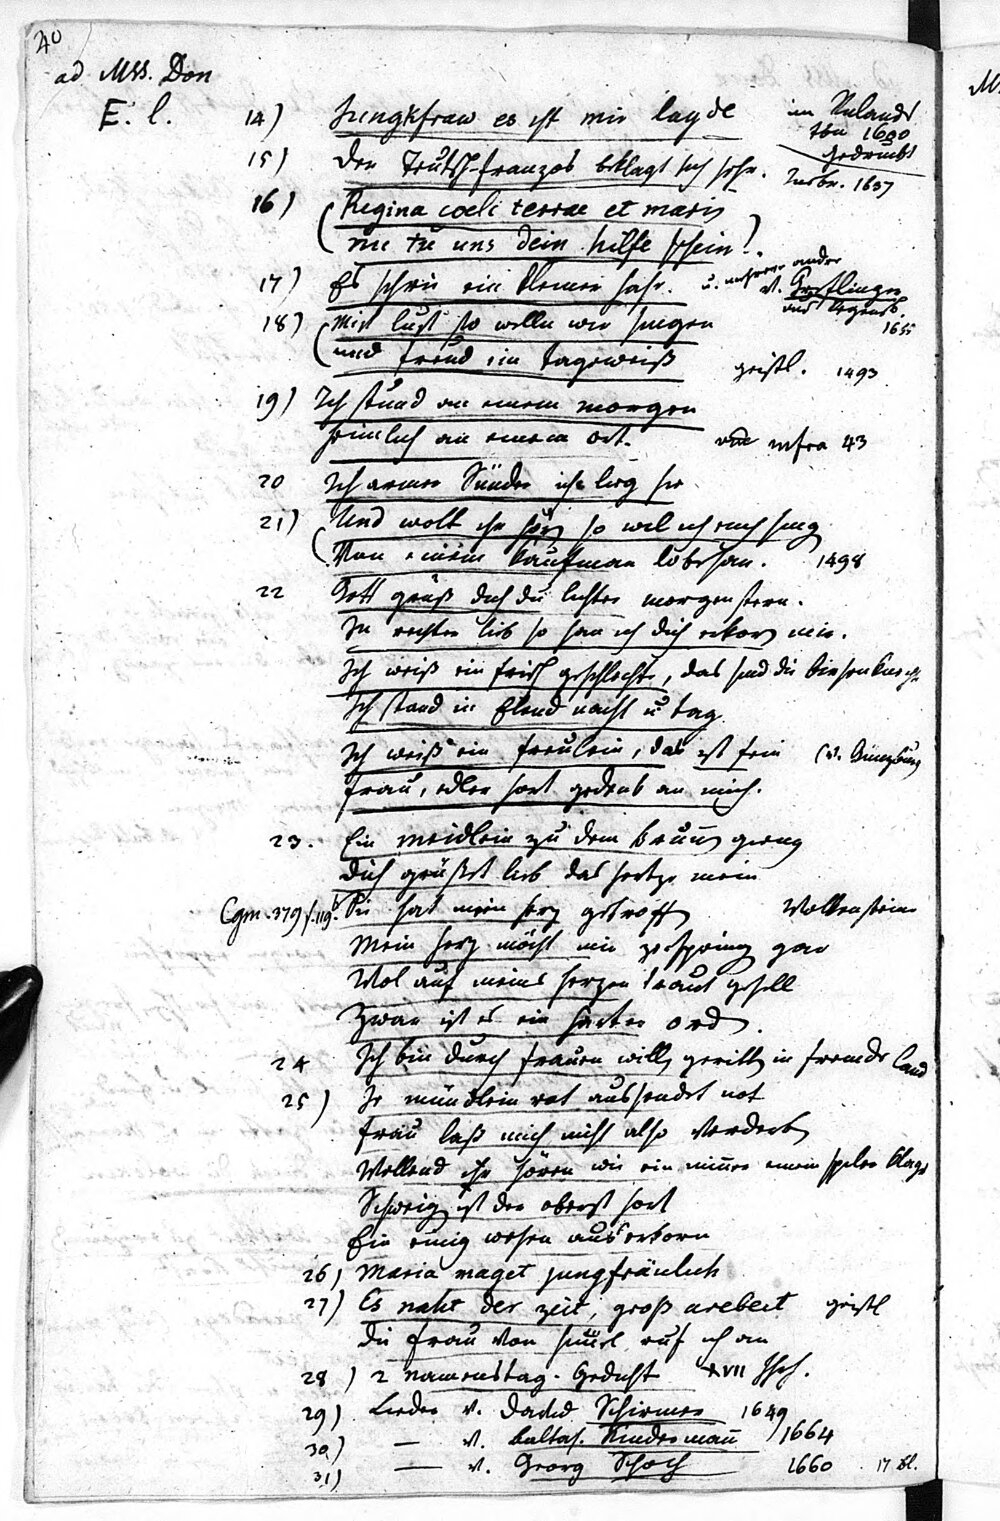 40
ad MSS. Don
E. l. 14) Jungkfraw es ist mir layde im Venusg
1600
gedruckt
15) Der Teutsch-franzos beklagt sich sehr. 1637
16) (Regina coeli terrae et maris
nu tu uns dein hilfe schein).
17) Es schrei ein kleiner u. mehrere andre
v. Greflinger
1655
18) (Mir lust so welln wir singen
und freud im tageweiß geistl. 1493
19) Ich stund an einem morgen
heimlich an einem ort. vide infra 43
20 Ich armer Sünder ich lig hie
21) (Und wolt ihr hörn so wil ich euch sing
Von einem Kaufman lobesan. 1498
22 Gott grüß dich du lichter morgenstern.
In rechter lieb so han ich dich erkorn mir.
Ich weiß ein frisch geschlechte, das sind die binsenknecht
Ich stand in Elend nacht u. tag
Ich weiß ein freulein, das ist fein (v. Günzburg
Frau, edler hort gedenk an mich.
23. Ein meidlein zu dem brunn gieng
Dich grüßet lieb das hertze mein
Cgm. 379 f. 119b. Sie hat mein herz getroffn Wolkenstein
Mein herz möcht mir zerspring gar
Wol auf meins herzen traut gesell
Zwar ist es ein harter ord
24 Ich bin durch frauen willn geritten in fremde Land
25) Ir mündlein rot aussendet not
Frau laß mich nicht also verderbn
Wellend ihr hören wie ein minner einem spiler klagt
Schweign ist der oberst hort
Ein einig wesen auserkorn
26) Maria maget jungfräulich
27) Es naht der zeit, groß arebeit geistl
Die frau von himel ruf ich an
28) 2 namenstag-Gedicht XVII Jhh.
29) Lieder v. David Schirmer 1649
30) — v. baltas. Kindermann 1664
31) — v. Georg Schoch 1660 17 bl.